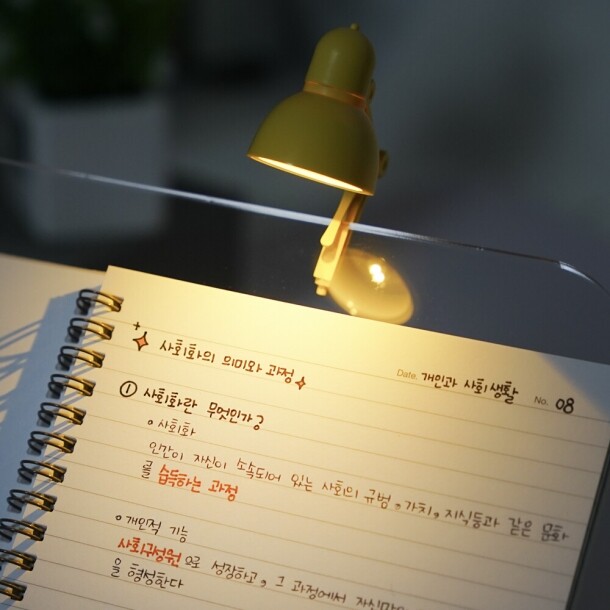 사회화의 의미와 과정
Date. 개인과 사회생활 No. 08
① 사회화란 무엇인가?
• 사회화
인간이 자신이 소속되어 있는 사회의 규범, 가치, 지식등과 같은 문화
를 습득하는 과정
• 개인적 기능
사회구성원으로 성장하고, 그 과정에서
을 형성한다